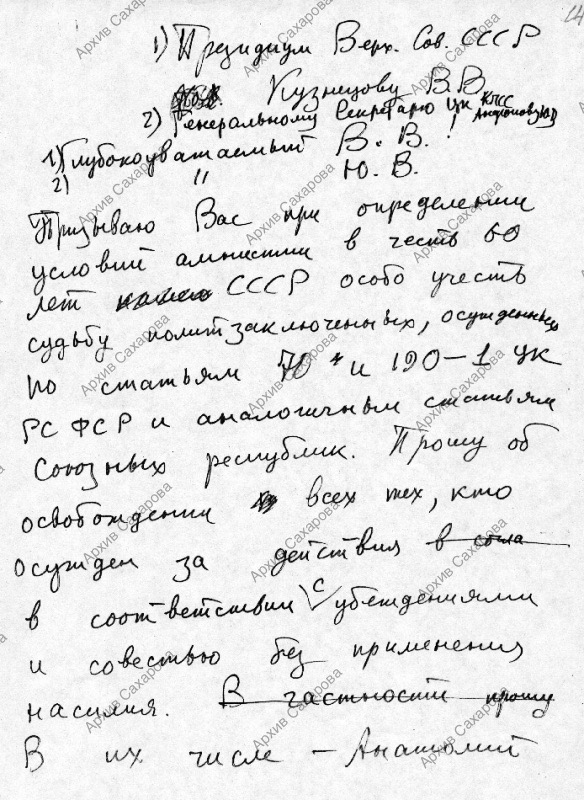 1) Президиум Верх. Сов. СССР
Кузнецову В В
2) Генеральному Секретарю ЦК КПСС Андропову Ю В
1) Глубокоуважаемый В. В. !
2) " Ю. В.
Призываю Вас при определении
условий амнистии в честь 60
лет СССР особо учесть
судьбу политзаключенных, осужденных
по статьям 70 и 190-1 УК
РСФСР и аналогичным статьям
Союзных республик. Прошу об
освобождении всех тех, кто
осужден за действия в согла
в соответствии с убеждениями
и совестью без применения
насилия. В частности прошу
В их числе — Анатолий
Архив Сахарова